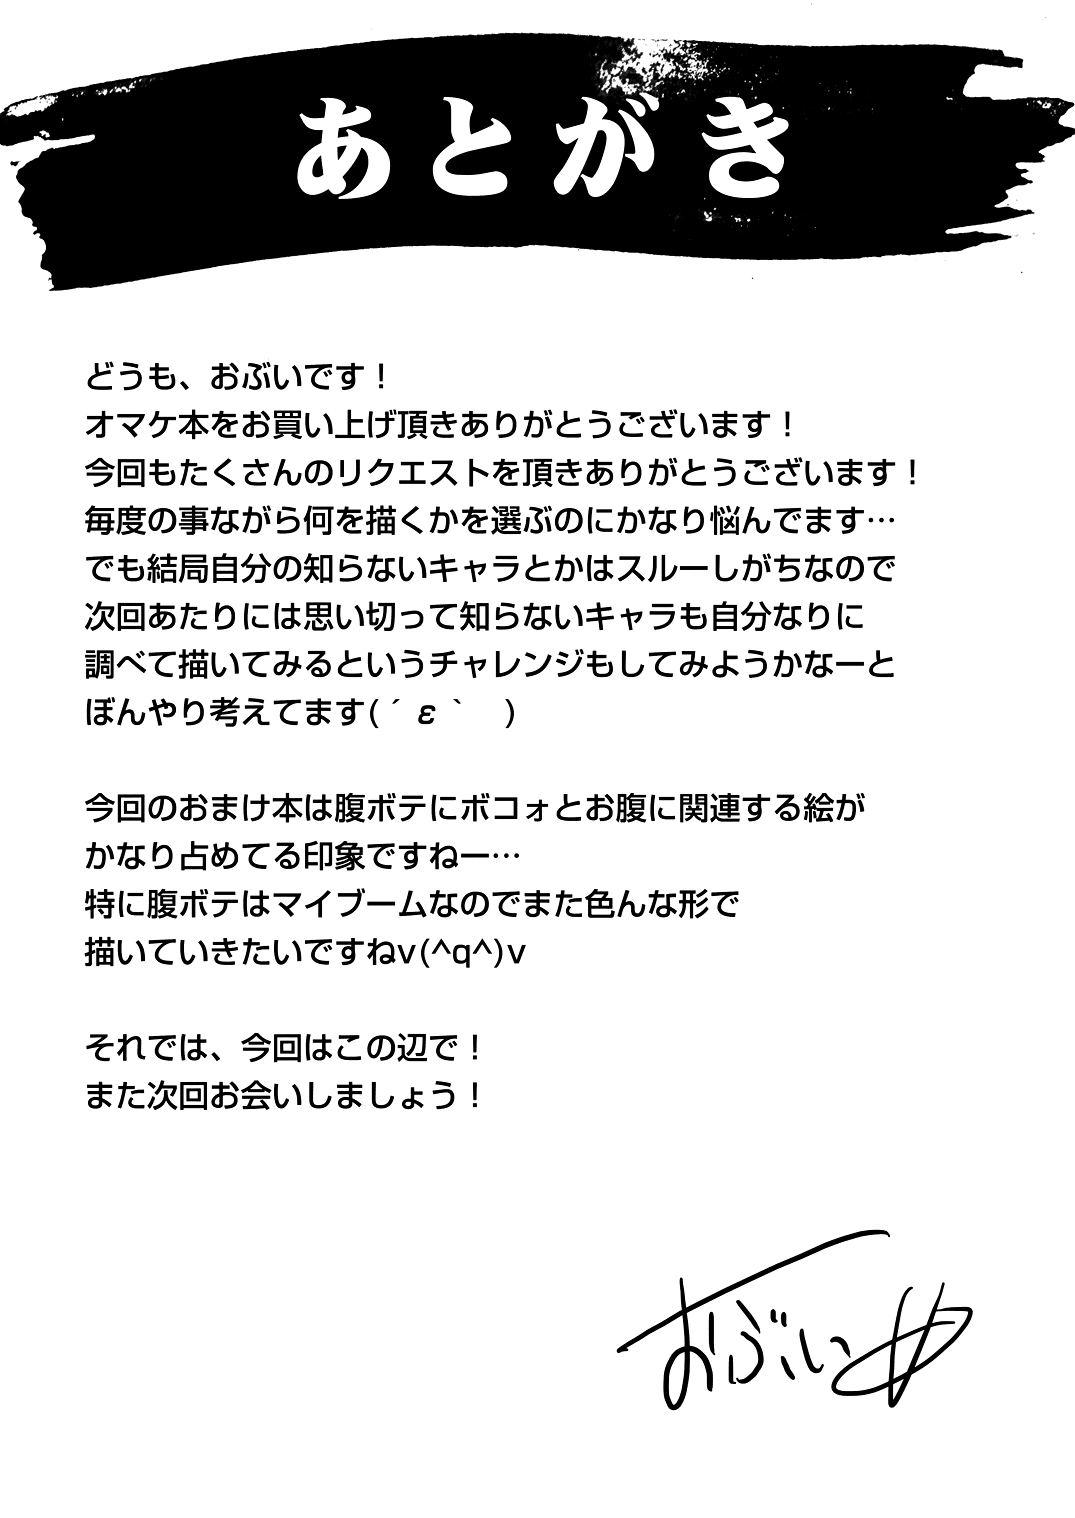 あとがき
どうも、おぶいです！
オマケ本をお買い上げ頂きありがとうございます！
今回もたくさんのリクエストを頂きありがとうございます！
毎度の事ながら何を描くかを選ぶのにかなり悩んでます…
でも結局自分の知らないキャラとかはスルーしがちなので
次回あたりには思い切って知らないキャラも自分なりに
調べて描いてみるというチャレンジもしてみようかなーと
ぼんやり考えてます(´ε｀　)
今回のおまけ本は腹ボテにボコォとお腹に関連する絵が
かなり占めてる印象ですねー…
特に腹ボテはマイブームなのでまた色んな形で
描いていきたいですねv(^q^)v
それでは、今回はこの辺で！
また次回お会いしましょう！
おぶい